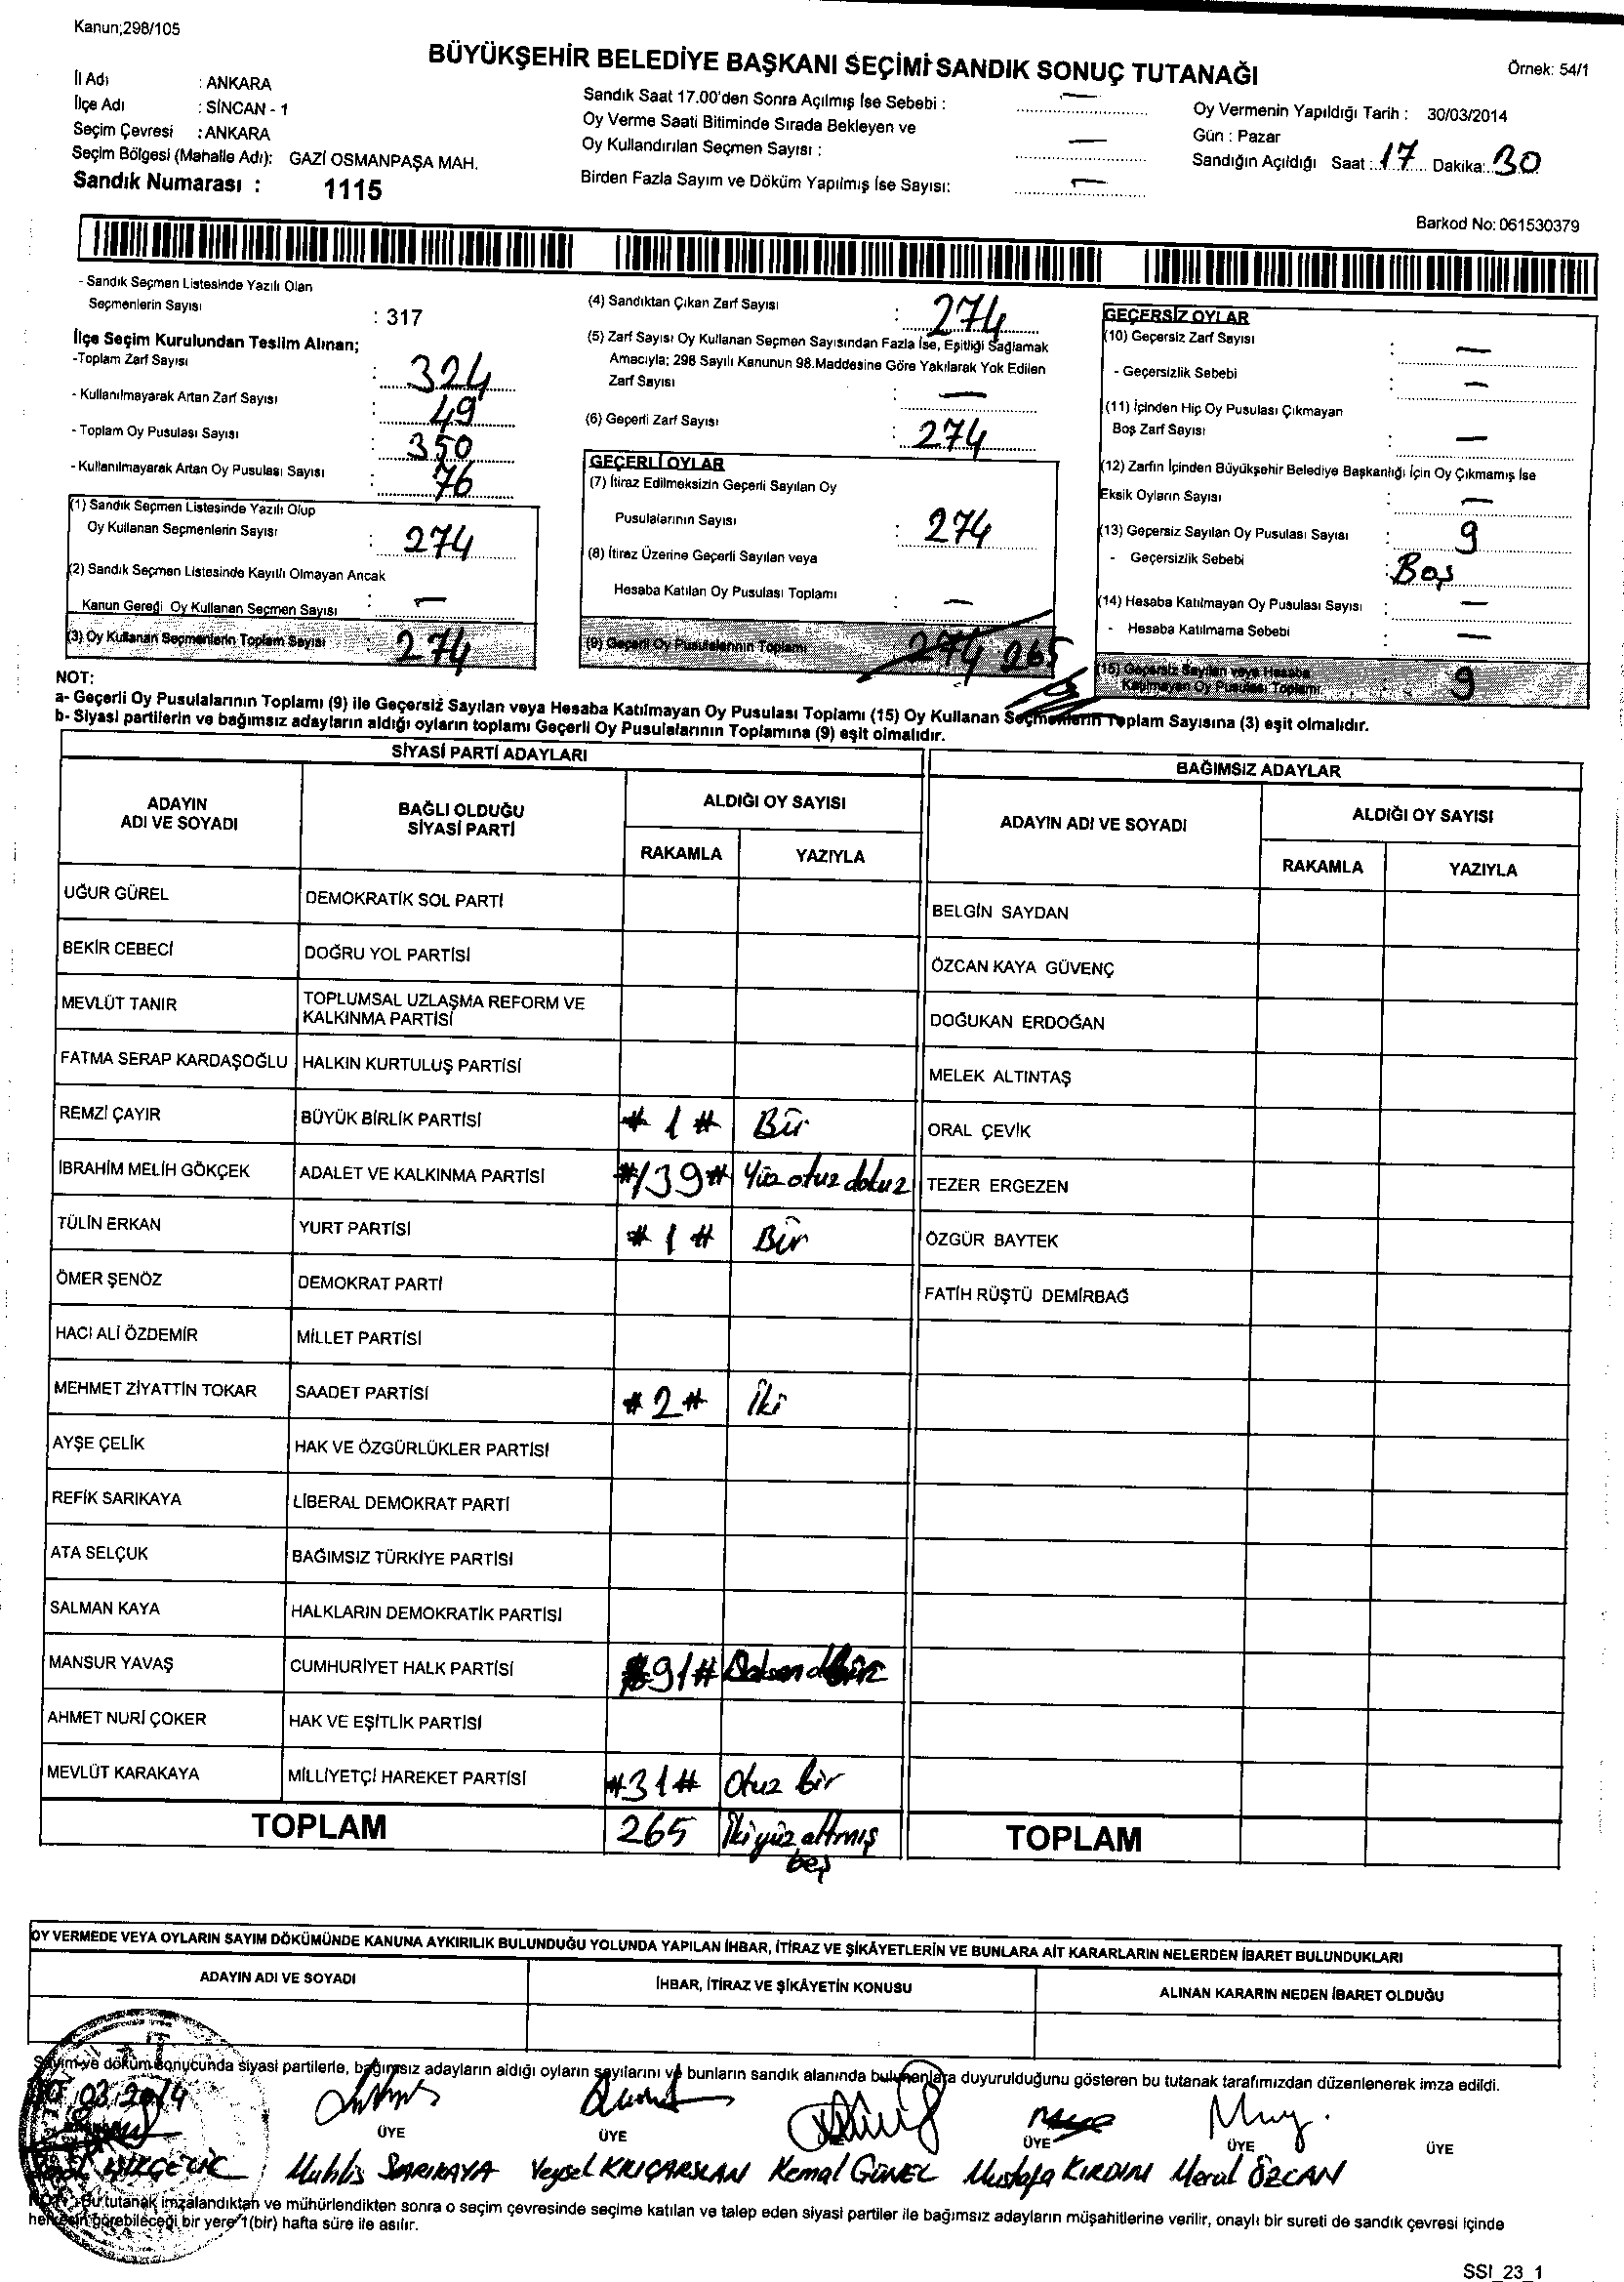 Kanun;298/105
BÜYÜKŞEHİR BELEDİYE BAŞKANI SEÇİMİ SANDIK SONUÇ TUTANAĞI
Örnek: 54/1
İl Adı : ANKARA
İlçe Adı : SİNCAN - 1
Seçim Çevresi : ANKARA
Seçim Bölgesi (Mahalle Adı): GAZİ OSMANPAŞA MAH.
Sandık Numarası : 1115
Sandık Saat 17.00'den Sonra Açılmış İse Sebebi : —
Oy Verme Saati Bitiminde Sırada Bekleyen ve
Oy Kullandırılan Seçmen Sayısı : —
Birden Fazla Sayım ve Döküm Yapılmış İse Sayısı: —
Oy Vermenin Yapıldığı Tarih : 30/03/2014
Gün : Pazar
Sandığın Açıldığı Saat : 17 Dakika: 30
Barkod No: 061530379
- Sandık Seçmen Listesinde Yazılı Olan
Seçmenlerin Sayısı : 317
İlçe Seçim Kurulundan Teslim Alınan;
-Toplam Zarf Sayısı : 324
- Kullanılmayarak Artan Zarf Sayısı : 49
- Toplam Oy Pusulası Sayısı : 350
- Kullanılmayarak Artan Oy Pusulası Sayısı : 76
(1) Sandık Seçmen Listesinde Yazılı Olup
Oy Kullanan Seçmenlerin Sayısı : 274
(2) Sandık Seçmen Listesinde Kayıtlı Olmayan Ancak
Kanun Gereği Oy Kullanan Seçmen Sayısı : —
(3) Oy Kullanan Seçmenlerin Toplam Sayısı : 274
(4) Sandıktan Çıkan Zarf Sayısı : 274
(5) Zarf Sayısı Oy Kullanan Seçmen Sayısından Fazla İse, Eşitliği Sağlamak
Amacıyla; 298 Sayılı Kanunun 98.Maddesine Göre Yakılarak Yok Edilen
Zarf Sayısı : —
(6) Geçerli Zarf Sayısı : 274
GEÇERLİ OYLAR
(7) İtiraz Edilmeksizin Geçerli Sayılan Oy
Pusulalarının Sayısı : 274
(8) İtiraz Üzerine Geçerli Sayılan veya
Hesaba Katılan Oy Pusulası Toplamı : —
(9) Geçerli Oy Pusulalarının Toplamı 274 265
GEÇERSİZ OYLAR
(10) Geçersiz Zarf Sayısı : —
- Geçersizlik Sebebi : —
(11) İçinden Hiç Oy Pusulası Çıkmayan
Boş Zarf Sayısı : —
(12) Zarfın İçinden Büyükşehir Belediye Başkanlığı İçin Oy Çıkmamış İse
Eksik Oyların Sayısı : —
(13) Geçersiz Sayılan Oy Pusulası Sayısı : 9
- Geçersizlik Sebebi : Boş
(14) Hesaba Katılmayan Oy Pusulası Sayısı : —
- Hesaba Katılmama Sebebi : —
(15) Geçersiz Sayılan veya Hesaba
Katılmayan Oy Pusulası Toplamı 9
NOT:
a- Geçerli Oy Pusulalarının Toplamı (9) ile Geçersiz Sayılan veya Hesaba Katılmayan Oy Pusulası Toplamı (15) Oy Kullanan Seçmenlerin Toplam Sayısına (3) eşit olmalıdır.
b- Siyasi partilerin ve bağımsız adayların aldığı oyların toplamı Geçerli Oy Pusulalarının Toplamına (9) eşit olmalıdır.
SİYASİ PARTİ ADAYLARI
ADAYIN ADI VE SOYADI BAĞLI OLDUĞU SİYASİ PARTİ ALDIĞI OY SAYISI
RAKAMLA YAZIYLA
UĞUR GÜREL DEMOKRATİK SOL PARTİ
BEKİR CEBECİ DOĞRU YOL PARTİSİ
MEVLÜT TANIR TOPLUMSAL UZLAŞMA REFORM VE KALKINMA PARTİSİ
FATMA SERAP KARDAŞOĞLU HALKIN KURTULUŞ PARTİSİ
REMZİ ÇAYIR BÜYÜK BİRLİK PARTİSİ # 1 # Bir
İBRAHİM MELİH GÖKÇEK ADALET VE KALKINMA PARTİSİ #139# Yüz otuz dokuz
TÜLİN ERKAN YURT PARTİSİ # 1 # Bir
ÖMER ŞENÖZ DEMOKRAT PARTİ
HACI ALİ ÖZDEMİR MİLLET PARTİSİ
MEHMET ZİYATTİN TOKAR SAADET PARTİSİ # 2 # İki
AYŞE ÇELİK HAK VE ÖZGÜRLÜKLER PARTİSİ
REFİK SARIKAYA LİBERAL DEMOKRAT PARTİ
ATA SELÇUK BAĞIMSIZ TÜRKİYE PARTİSİ
SALMAN KAYA HALKLARIN DEMOKRATİK PARTİSİ
MANSUR YAVAŞ CUMHURİYET HALK PARTİSİ #91# Doksan bir
AHMET NURİ ÇOKER HAK VE EŞİTLİK PARTİSİ
MEVLÜT KARAKAYA MİLLİYETÇİ HAREKET PARTİSİ #31# Otuz bir
TOPLAM 265 İki yüz altmış beş
BAĞIMSIZ ADAYLAR
ADAYIN ADI VE SOYADI ALDIĞI OY SAYISI
RAKAMLA YAZIYLA
BELGİN SAYDAN
ÖZCAN KAYA GÜVENÇ
DOĞUKAN ERDOĞAN
MELEK ALTINTAŞ
ORAL ÇEVİK
TEZER ERGEZEN
ÖZGÜR BAYTEK
FATİH RÜŞTÜ DEMİRBAĞ
TOPLAM
OY VERMEDE VEYA OYLARIN SAYIM DÖKÜMÜNDE KANUNA AYKIRILIK BULUNDUĞU YOLUNDA YAPILAN İHBAR, İTİRAZ VE ŞİKÂYETLERİN VE BUNLARA AİT KARARLARIN NELERDEN İBARET BULUNDUKLARI
ADAYIN ADI VE SOYADI İHBAR, İTİRAZ VE ŞİKÂYETİN KONUSU ALINAN KARARIN NEDEN İBARET OLDUĞU
Sayım ve döküm sonucunda siyasi partilerle, bağımsız adayların aldığı oyların sayılarını ve bunların sandık alanında bulunanlara duyurulduğunu gösteren bu tutanak tarafımızdan düzenlenerek imza edildi.
30.03.2014
ÜYE ÜYE ÜYE ÜYE ÜYE
Muhlis SARIKAYA Veysel KILIÇARSLAN Kemal GÜNEL Mustafa KIRDIM Meral ÖZCAN
NOT: Bu tutanak imzalandıktan ve mühürlendikten sonra o seçim çevresinde seçime katılan ve talep eden siyasi partiler ile bağımsız adayların müşahitlerine verilir, onaylı bir sureti de sandık çevresi içinde
herkesin görebileceği bir yere 1 (bir) hafta süre ile asılır.
SSI_23_1